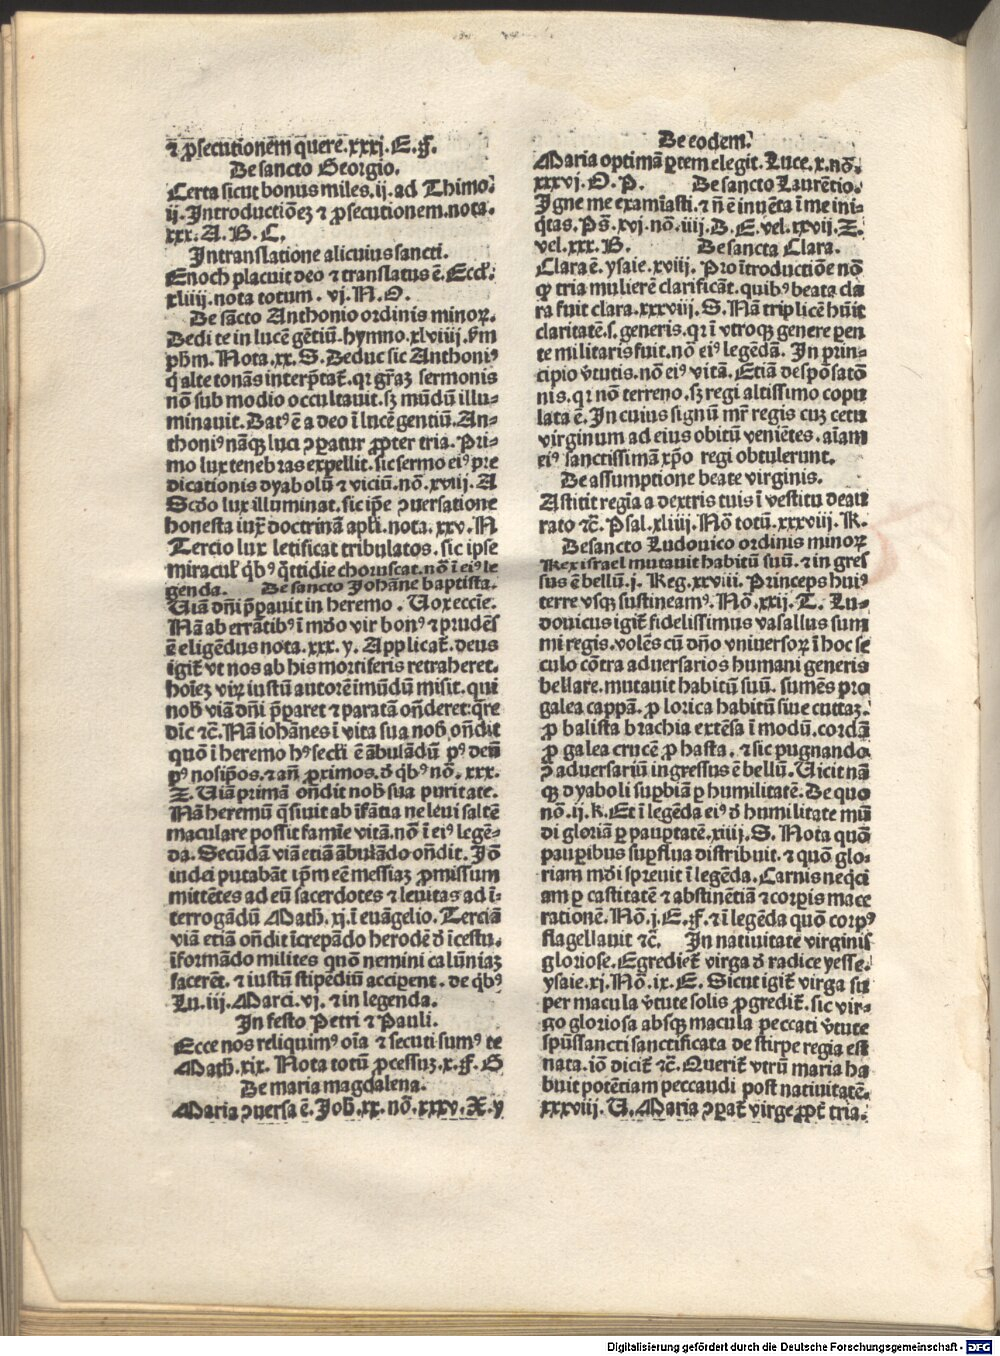 ⁊ ꝓsecutionem quere.xxxj.E.F.
De sancto Georgio.
Certa sicut bonus miles.ij.ad Thimo.
ij. Introductiōeꝫ ⁊ ꝓsecutionem.nota.
xxx.A.B.C.
In translatione alicuius sancti.
Enoch placuit deo ⁊ translatus ē. Eccl'.
xliiij.nota totum. vj.N.O.
De sācto Anthonio ordinis minoꝝ.
Dedi te in lucē gētiū.hymno.xlviiij.ẜm
ph̄m. Nota.xx.S. Deduc sic Anthoniꝰ
q̄ alte tonās interp̄tat̄. qꝛ gr̄aꝫ sermonis
nō sub modio occultauit.sꝫ mūdū illu-
minauit. Datꝰ ē a deo ī lucē gentiū. An-
thoniꝰ nāqꝫ luci ꝯꝑatur ꝓpter tria. Pri-
mo lux tenebras expellit. sic sermo eiꝰ pre
dicationis dyabolū ⁊ viciū.nō.xviij.A
Scd̄o lux illuminat. sic ip̄e ꝯuersatione
honesta iux̄ doctrinā apl̄i.nota.xxv.N
Tercio lux letificat tribulatos. sic ipse
miracul' q̄bꝰ q̄ttidie choruscat.nō ī eiꝰ le
genda. De sancto Johāne baptista.
Uiā dn̄i p̄parauit in heremo. Uox eccīe.
Nā ab errātibꝰ ī mōdo vir bonꝰ ⁊ prudēs
ē eligēdus nota.xxx.y. Applicat̄.deus
igit̄ vt nos ab his mortiferis retraheret.
hoīeꝫ viꝝ iustū autorē ī mūdū misit. qui
nob̄ viā dn̄i p̄pararet ⁊ paratā on̄deret:q̄re
dīc ⁊c̄. Nā iohānes ī vita sua nob̄ on̄dit
quō ī heremo hꝰ secl̄i ē ābulādū pꝰ deū
pꝰ nosip̄os.⁊ añ ꝓximos. ð q̄bꝰ nō. xxx.
Z. Uiā primā on̄dit nob̄ sua puritate.
Nā heremū q̄siuit ab īfātia ne leui saltē
maculare possit famīe vitā.nō ī eiꝰ legē-
da. Secūdā viā etiā ābulādo on̄dit. Iō
iudei putabāt ip̄m eē messiaꝫ ꝓmissum
mittētes ad eū sacerdotes ⁊ leuitas ad ī-
terrogādū Math̄.xj.ī euāgelio. Terciā
viā etiā on̄dit īcrepādo herodē ð īcestu.
īformādo milites quō nemini calūniaꝫ
facerēt. ⁊ iustū stipediū acciꝑent. de q̄bꝰ
Lu.iij. Marci.vj. ⁊ in legenda.
In festo Petri ⁊ Pauli.
Ecce nos reliquimꝰ oīa ⁊ secuti sumꝰ te
Math̄.xix. Nota totū ꝓcessuꝫ.x.F.G
De maria magdalena.
Maria ꝯuersa ē. Joh̄.xx.nō.xxxv.X.y
De eodem.
Maria optimā ꝑtem elegit. Luce.x.nō.
xxxvj.O.P. De sancto Laurētio.
Igne me examīasti.⁊ n̄ ē inuēta ī me ini-
q̄tas. Ps̄.xvj.nō.iiij.D.E.vel.xxvij.Z.
vel.xxx.B. De sancta Clara.
Clara ē. ysaie.xviij. Pro ītroductiōe nō
qꝫ tria mulierē clarificāt. quibꝰ beata cla
ra fuit clara.xxxviij.S. Nā triplicē hūit
claritatē.s. generis.qꝛ ī vtroqꝫ genere pen
te militaris fuit.nō eiꝰ legēdā. In prin-
cipio v̄tutis. nō eiꝰ vitā. Etiā despōsatō
nis.qꝛ nō terreno.sꝫ regi altissimo copu
lata ē. In cuius signū mr̄ regis cuꝫ cetu
virginum ad eius obitū veniētes. aīam
eiꝰ sanctissimā xp̄o regi obtulerunt.
De assumptione beate virginis.
Astitit regīa a dextris tuis ī vestitu deau
rato ⁊c̄. Psal.xliiij. Nō totū.xxxviij.K.
De sancto Ludouico ordinis minoꝝ
Rex israel mutauit habitū suū. ⁊ in gres
sus ē bellū.j. Reg.xxviij. Princeps huiꝰ
terre vsqꝫ sustineamꝰ. Nō.xxij.T. Lu-
douicus igit̄ fidelissimus vasallus sum
mi regis.volēs cū dn̄o vniuersoꝝ ī hoc se
culo cōtra aduersarios humani generis
bellare.mutauit habitū suū. sumēs pro
galea cappā. ꝓ lorica habitū siue cuttaꝫ.
ꝓ balista brachia extēsa ī modū.cordā
ꝓ galea crucē ꝓ hasta. ⁊ sic pugnando
ꝯ aduersariū ingressus ē bellū. Uicit nā
qꝫ dyaboli supbiā ꝑ humilitatē. De quo
nō.ij.k. Et ī legēda eiꝰ ð humilitate mū
di gloriā ꝑ pauꝑtatē.xiiij.S. Nota quō
pauꝑibus suꝑflua distribuit. ⁊ quō glo-
riam mōi spreuit ī legēda. Carnis neq̄ci
am ꝑ castitatē ⁊ abstinētiā ⁊ corꝑis mace
rationē. Nō.j.E.F.⁊ ī legēda quō corpꝰ
flagellauit ⁊c̄. In natiuitate virginis
gloriose. Egrediet̄ virga ð radice yesse.
ysaie.xj. Nō.ix.E. Sicut igit̄ virga su
per macula v̄tute solis ꝓgredit̄. sic vir-
go gloriosa absqꝫ macula peccati v̄tute
spūssancti sanctificata de stirpe regia est
nata. iō dicit̄ ⁊c̄. Querit̄ vtrū maria ha
buit potētiam peccandi post natiuitatē.
xxxviij. U. Maria ꝯꝑat̄ virge ꝓpt̄ tria.
Digitalisierung gefördert durch die Deutsche Forschungsgemeinschaft - DFG